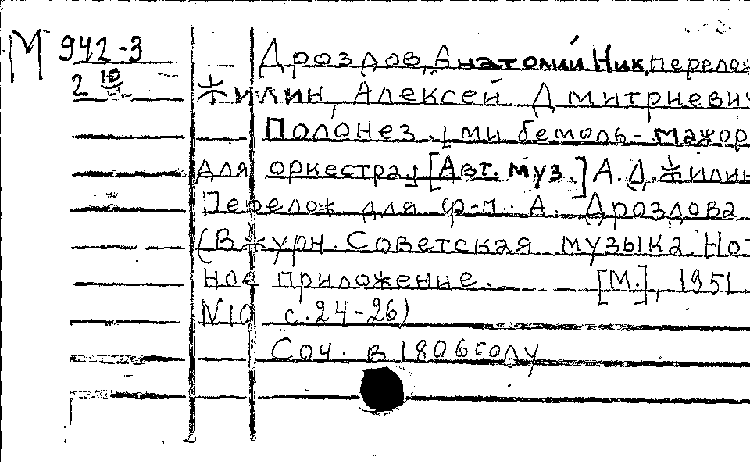 М 942-3 Дроздов, Анатолий Ник, перелож
2 10 Жилин, Алексей Дмитриевич
Полонез. [ми бемоль-мажор
для оркестра] [Авт. муз.] А.Д.Жилин
Перелож для ф-п. А. Дроздова
(В журн. Советская музыка. Нот
ное приложение. [М.], 1951
N10 с.24-26)
Соч. в 1806 году